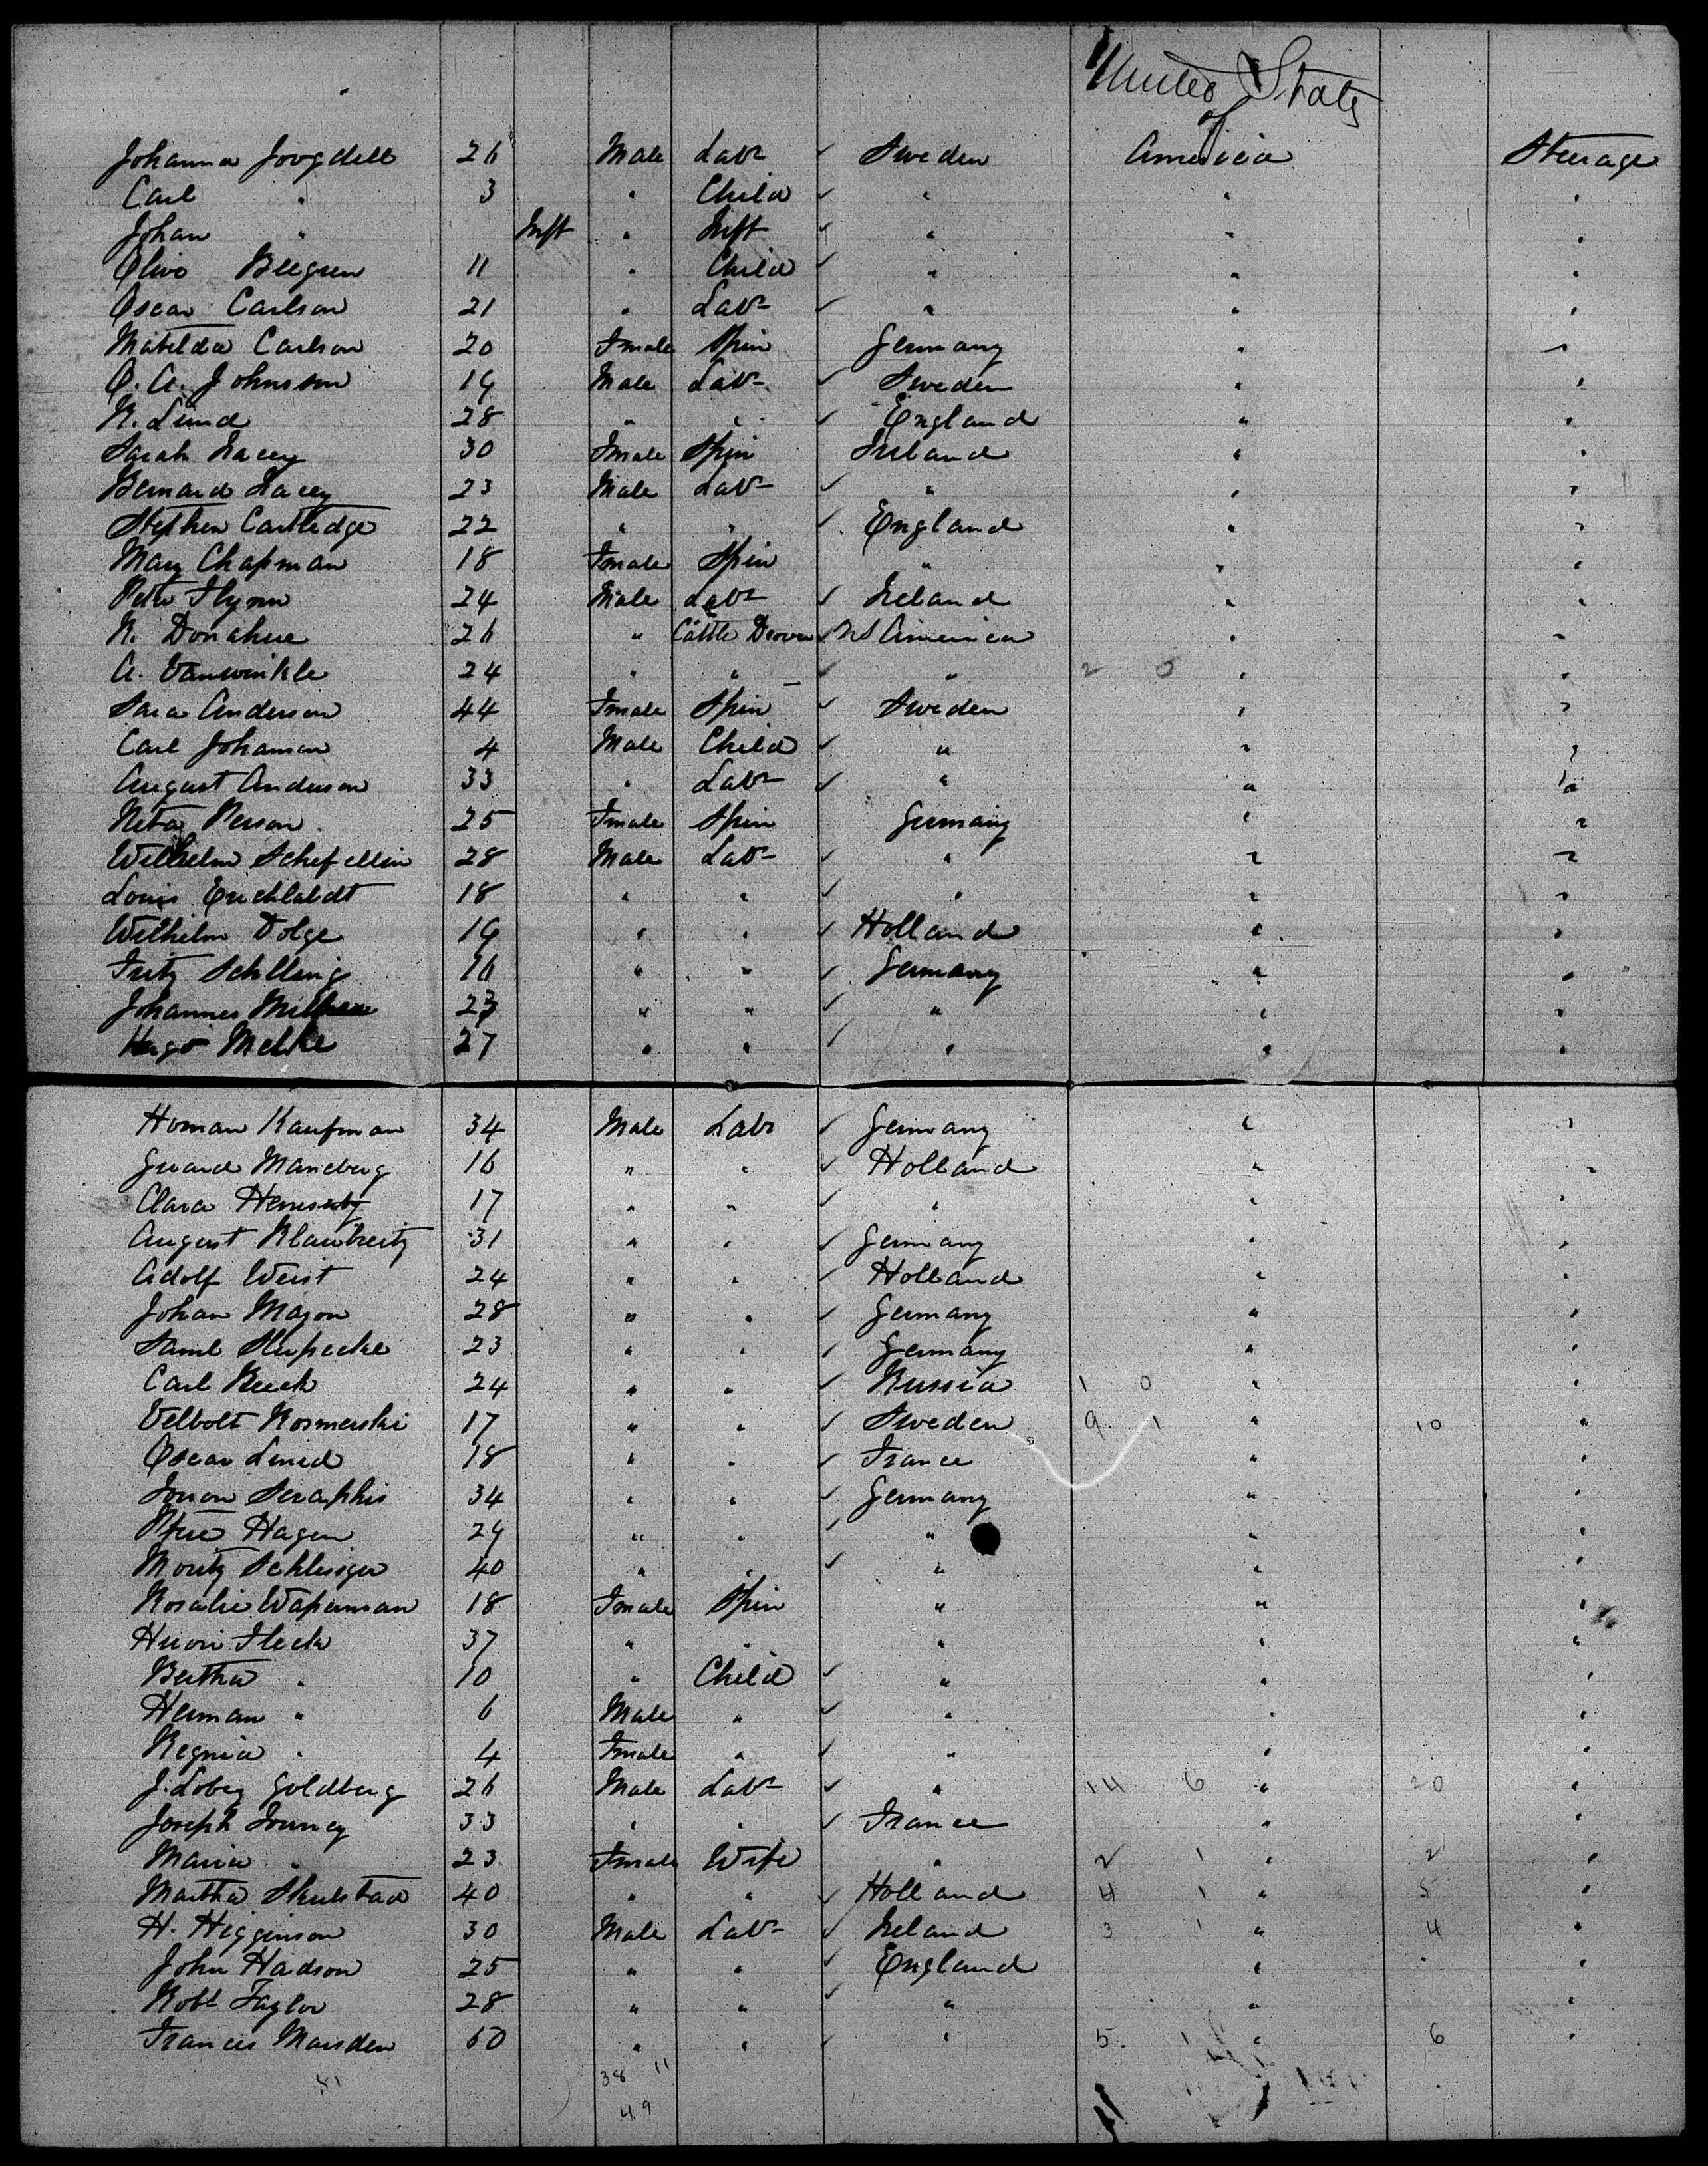 United States
of
Johanna Joogdell 26 Male Labr ✓ Sweden America Steerage
Carl " 3 " Child ✓ " " "
Johan " Inft " Inft ✓ " " "
Olivo Beegren 11 " Child ✓ " " "
Oscar Carlson 21 " Labr ✓ " " "
Matilda Carlson 20 Fmale Spin Germany " "
O. A. Johnson 19 Male Labr ✓ Sweden " "
N. Lund 28 " " ✓ England " "
Sarah Lacey 30 Fmale Spin Ireland " "
Bernard Lacey 23 Male Labr ✓ " " "
Stephen Cartledge 22 " " ✓ England " "
Mary Chapman 18 Fmale Spin " " "
Peter Flynn 24 Male Labr ✓ Ireland " "
N. Donahue 26 " Cattle Drover ✓ America " "
A. Vanwinkle 24 " " ✓ " 2 0 " "
Sara Anderson 44 Fmale Spin ✓ Sweden " "
Carl Johanson 4 Male Child ✓ " " "
August Anderson 33 " Labr ✓ " " "
Neta Person 25 Fmale Spin Germany " "
Wilhelm Schefellin 28 Male Labr ✓ " " "
Louis 18 " " ✓ " " "
Wilhelm Dolge 19 " " ✓ Holland " "
Fritz Schlling 16 " " ✓ Germany " "
Johannes 23 " " ✓ " " "
Hugo Melke 27 " " ✓ " " "
Homan Kaufman 34 Male Labr ✓ Germany " "
Guard Maneberg 16 " " ✓ Holland " "
Clara 17 " " ✓ " " "
August Klaubreitz 31 " " ✓ Germany " "
Adolf Weist 24 " " ✓ Holland " "
Johan Mazon 28 " " ✓ Germany " "
Saml 23 " " ✓ Germany " "
Carl Beeck 24 " " ✓ Russia 1 0 " "
Velbolt Rosmerski 17 " " ✓ Sweden 9 1 " 10 "
Oscar Linid 18 " " ✓ France " "
Seraphis 34 " " ✓ Germany " "
Hagen 29 " " ✓ " " "
Moritz Schlesiger 40 " " ✓ " " "
Rosalie Waperman 18 Fmale Spin " " "
Fleck 37 " " " " "
Bertha " 10 " Child ✓ " " "
Herman " 6 Male " ✓ " " "
Regnia " 4 Fmale " ✓ " " "
J. Lobey Goldberg 26 Male Labr ✓ " 14 6 " 20 "
Joseph 33 " " ✓ France " "
Maria " 23 Fmale Wife " 2 1 " 2 "
Martha Skulstad 40 " " ✓ Holland 4 1 " 5 "
H. Higginson 30 Male Labr ✓ Ireland 3 1 " 4 "
John Hadson 25 " " ✓ England " "
Robt Taylor 28 " " ✓ " " "
Francis Marsden 60 " " ✓ " 5 1 " 6 "
81 38 11
49